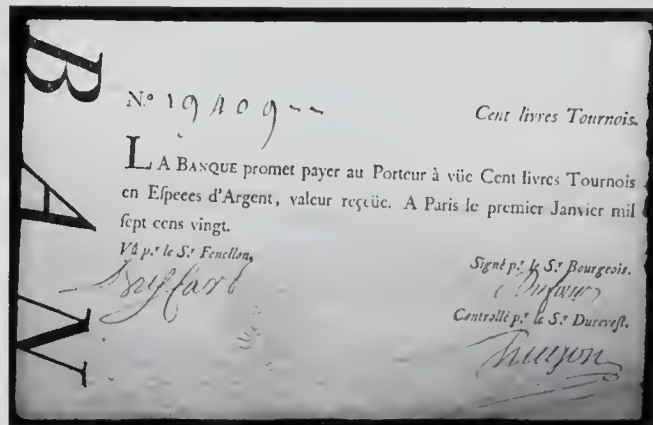 BAN
N.º 19109-- Cent livres Tournois.
LA BANQUE promet payer au Porteur à vüe Cent livres Tournois
en Eſpeces d'Argent, valeur reçeüe. A Paris le premier Janvier mil
ſept cens vingt.
Vû p.ʳ le S.ʳ Fenellon,
Signé p.ʳ le S.ʳ Bourgeois.
Controllé p.ʳ le S.ʳ Dureveſt.